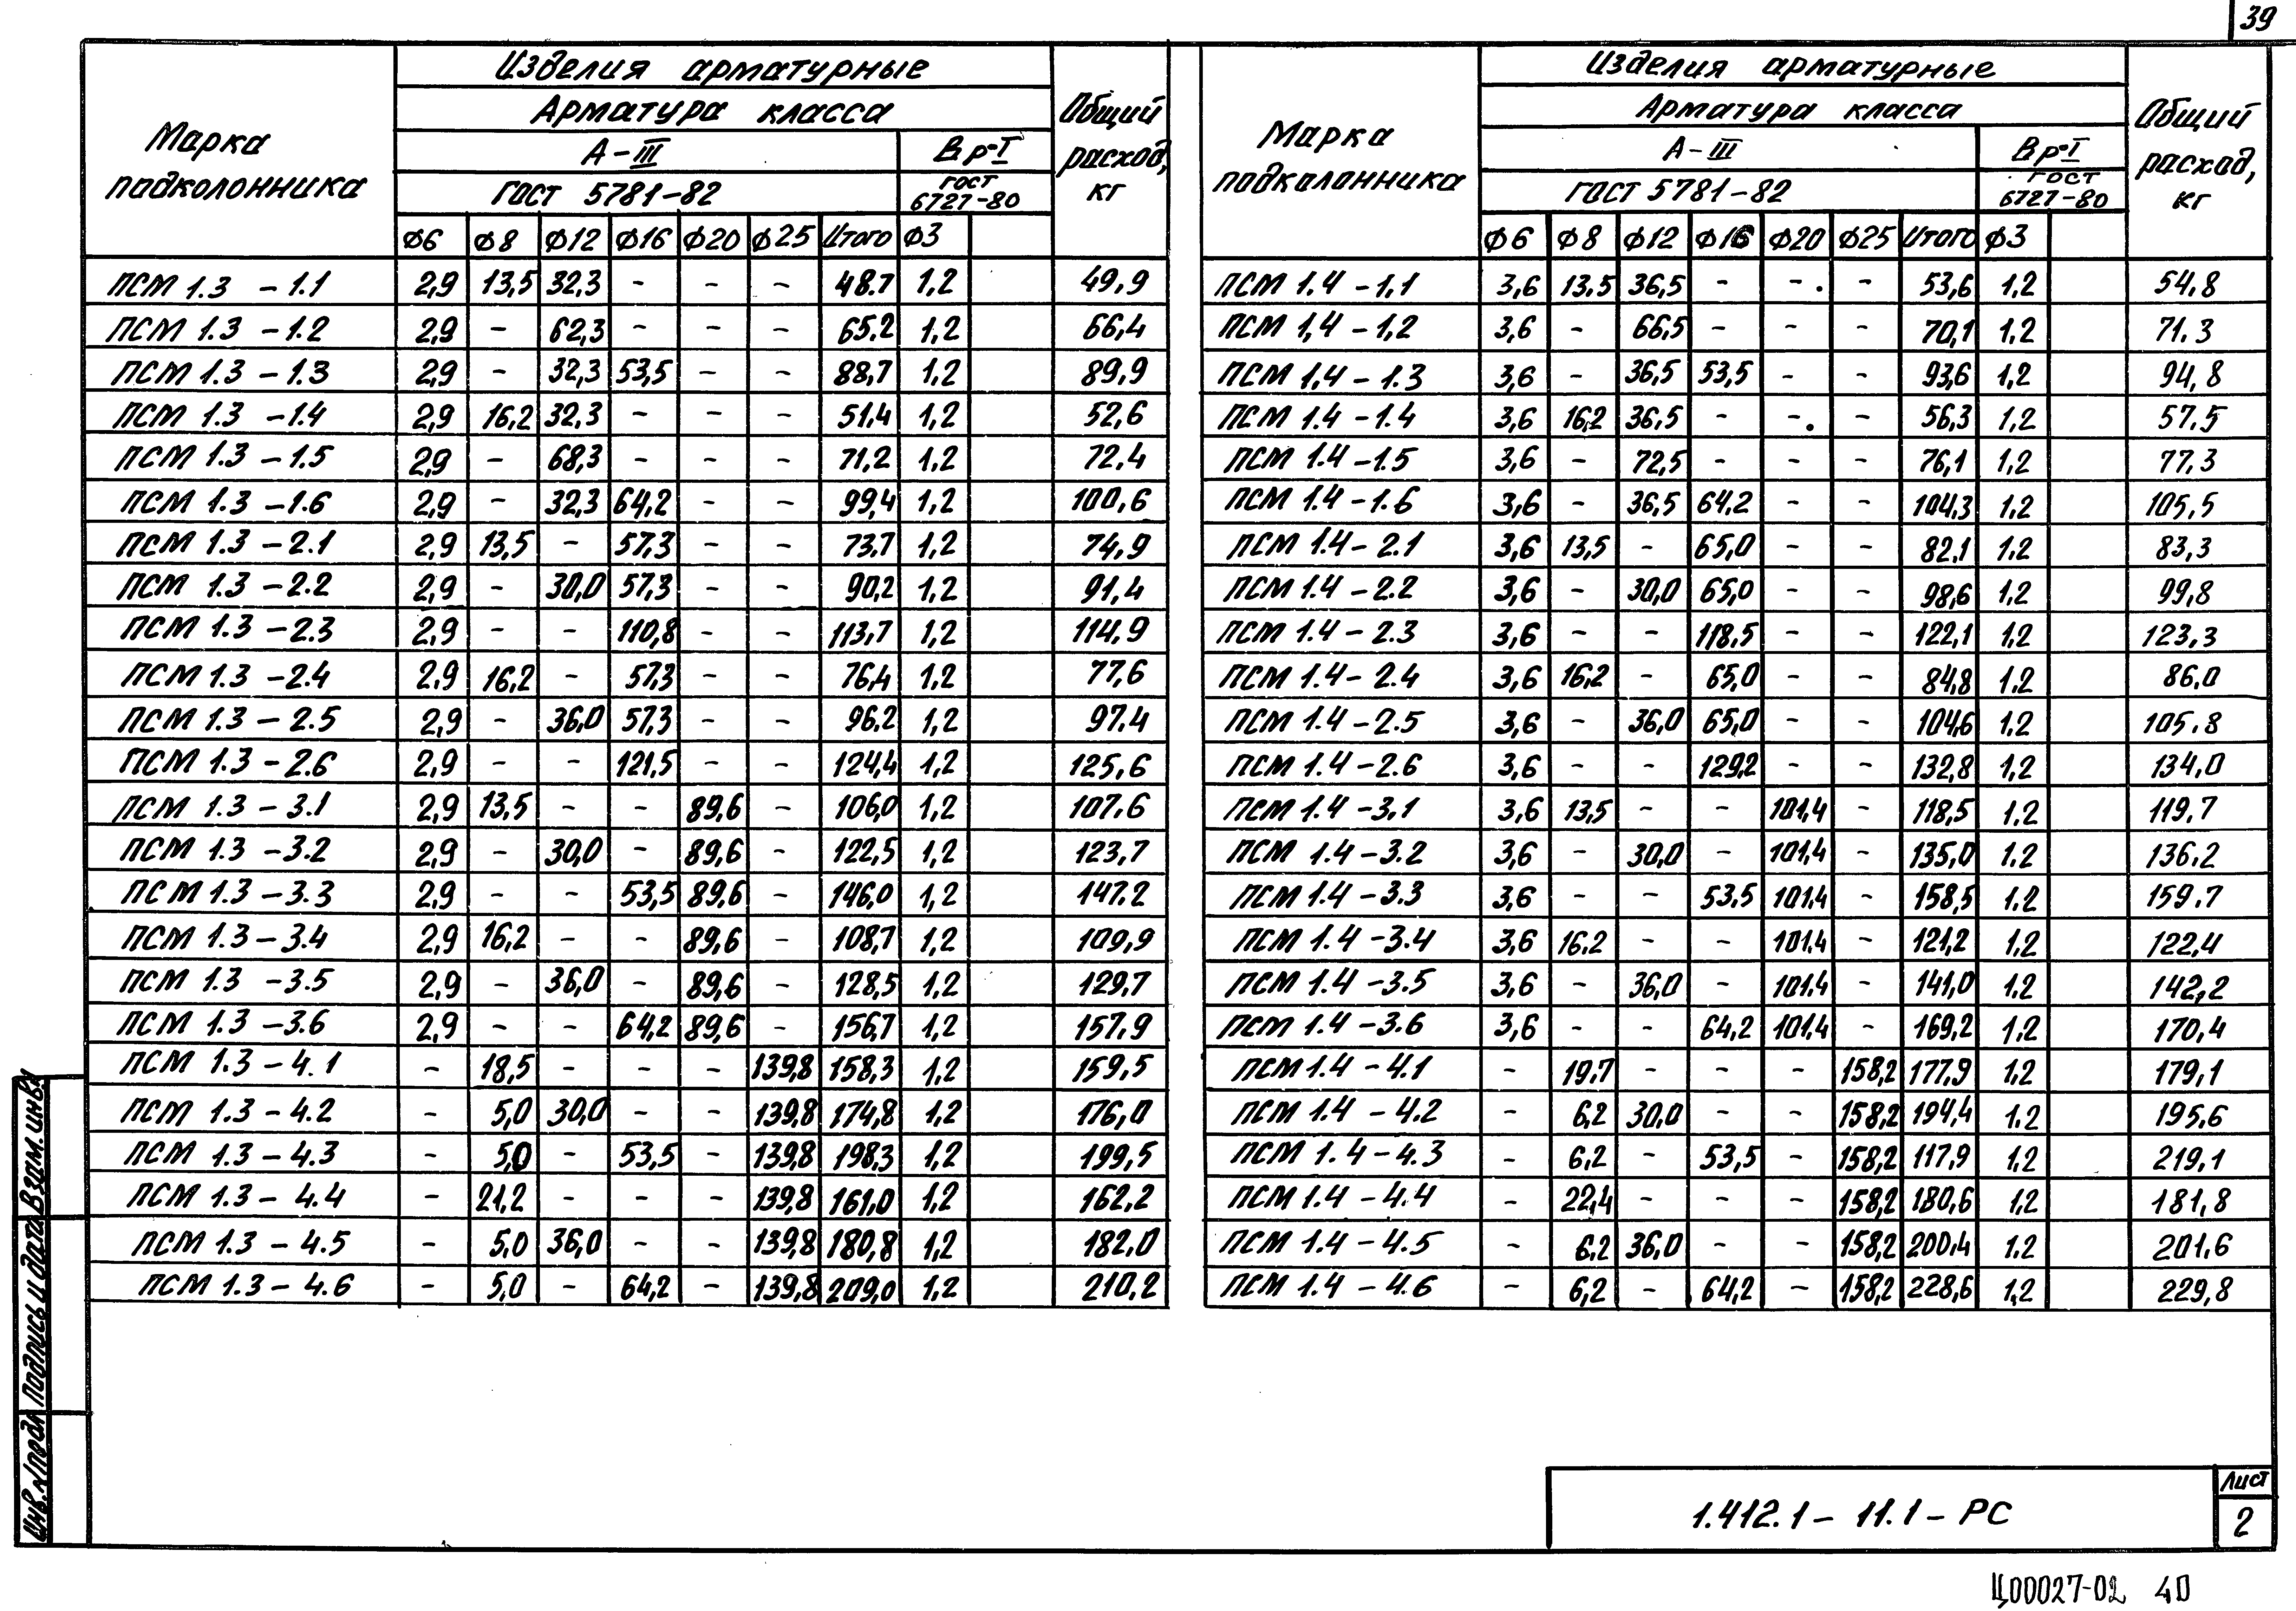 39
Марка подколонника | Изделия арматурные | Общий расход, кг
Арматура класса
А-III | Вр-I
ГОСТ 5781-82 | ГОСТ 6727-80
ф6 | ф8 | ф12 | ф16 | ф20 | ф25 | Итого | ф3
ПСМ 1.3 - 1.1 | 2,9 | 13,5 | 32,3 | - | - | - | 48.7 | 1,2 | 49,9
ПСМ 1.3 - 1.2 | 2,9 | - | 62,3 | - | - | - | 65.2 | 1,2 | 66,4
ПСМ 1.3 - 1.3 | 2,9 | - | 32,3 | 53,5 | - | - | 88,7 | 1,2 | 89,9
ПСМ 1.3 - 1.4 | 2,9 | 16,2 | 32,3 | - | - | - | 51,4 | 1,2 | 52,6
ПСМ 1.3 - 1.5 | 2,9 | - | 68,3 | - | - | - | 71,2 | 1,2 | 72,4
ПСМ 1.3 - 1.6 | 2,9 | - | 32,3 | 64,2 | - | - | 99,4 | 1,2 | 100,6
ПСМ 1.3 - 2.1 | 2,9 | 13,5 | - | 57,3 | - | - | 73,7 | 1,2 | 74,9
ПСМ 1.3 - 2.2 | 2,9 | - | 30,0 | 57,3 | - | - | 90,2 | 1,2 | 91,4
ПСМ 1.3 - 2.3 | 2,9 | - | - | 110,8 | - | - | 113,7 | 1,2 | 114,9
ПСМ 1.3 - 2.4 | 2,9 | 16,2 | - | 57,3 | - | - | 76,4 | 1,2 | 77,6
ПСМ 1.3 - 2.5 | 2,9 | - | 36,0 | 57,3 | - | - | 96,2 | 1,2 | 97,4
ПСМ 1.3 - 2.6 | 2,9 | - | - | 121,5 | - | - | 124,4 | 1,2 | 125,6
ПСМ 1.3 - 3.1 | 2,9 | 13,5 | - | - | 89,6 | - | 106,0 | 1,2 | 107,6
ПСМ 1.3 - 3.2 | 2,9 | - | 30,0 | - | 89,6 | - | 122,5 | 1,2 | 123,7
ПСМ 1.3 - 3.3 | 2,9 | - | - | 53,5 | 89,6 | - | 146,0 | 1,2 | 147,2
ПСМ 1.3 - 3.4 | 2,9 | 16,2 | - | - | 89,6 | - | 108,7 | 1,2 | 109,9
ПСМ 1.3 - 3.5 | 2,9 | - | 36,0 | - | 89,6 | - | 128,5 | 1,2 | 129,7
ПСМ 1.3 - 3.6 | 2,9 | - | - | 64,2 | 89,6 | - | 156,7 | 1,2 | 157,9
ПСМ 1.3 - 4.1 | - | 18,5 | - | - | - | 139,8 | 158,3 | 1,2 | 159,5
ПСМ 1.3 - 4.2 | - | 5,0 | 30,0 | - | - | 139,8 | 174,8 | 1,2 | 176,0
ПСМ 1.3 - 4.3 | - | 5,0 | - | 53,5 | - | 139,8 | 198,3 | 1,2 | 199,5
ПСМ 1.3 - 4.4 | - | 21,2 | - | - | - | 139,8 | 161,0 | 1,2 | 162,2
ПСМ 1.3 - 4.5 | - | 5,0 | 36,0 | - | - | 139,8 | 180,8 | 1,2 | 182,0
ПСМ 1.3 - 4.6 | - | 5,0 | - | 64,2 | - | 139,8 | 209,0 | 1,2 | 210,2
Марка подколонника | Изделия арматурные | Общий расход, кг
Арматура класса
А-III | Вр-I
ГОСТ 5781-82 | ГОСТ 6727-80
ф6 | ф8 | ф12 | ф16 | ф20 | ф25 | Итого | ф3
ПСМ 1.4 - 1,1 | 3,6 | 13,5 | 36,5 | - | - | - | 53,6 | 1,2 | 54,8
ПСМ 1,4 - 1,2 | 3,6 | - | 66,5 | - | - | - | 70,1 | 1,2 | 71,3
ПСМ 1,4 - 1.3 | 3,6 | - | 36,5 | 53,5 | - | - | 93,6 | 1,2 | 94,8
ПСМ 1.4 - 1.4 | 3,6 | 16,2 | 36,5 | - | - | - | 56,3 | 1,2 | 57,5
ПСМ 1.4 - 1.5 | 3,6 | - | 72,5 | - | - | - | 76,1 | 1,2 | 77,3
ПСМ 1.4 - 1.6 | 3,6 | - | 36,5 | 64,2 | - | - | 104,3 | 1,2 | 105,5
ПСМ 1.4 - 2.1 | 3,6 | 13,5 | - | 65,0 | - | - | 82,1 | 1,2 | 83,3
ПСМ 1.4 - 2.2 | 3,6 | - | 30,0 | 65,0 | - | - | 98,6 | 1,2 | 99,8
ПСМ 1.4 - 2.3 | 3,6 | - | - | 118,5 | - | - | 122,1 | 1,2 | 123,3
ПСМ 1.4 - 2.4 | 3,6 | 16,2 | - | 65,0 | - | - | 84,8 | 1,2 | 86,0
ПСМ 1.4 - 2.5 | 3,6 | - | 36,0 | 65,0 | - | - | 104,6 | 1,2 | 105,8
ПСМ 1.4 - 2.6 | 3,6 | - | - | 129,2 | - | - | 132,8 | 1,2 | 134,0
ПСМ 1.4 - 3.1 | 3,6 | 13,5 | - | - | 101,4 | - | 118,5 | 1,2 | 119,7
ПСМ 1.4 - 3.2 | 3,6 | - | 30,0 | - | 101,4 | - | 135,0 | 1,2 | 136,2
ПСМ 1.4 - 3.3 | 3,6 | - | - | 53,5 | 101,4 | - | 158,5 | 1,2 | 159,7
ПСМ 1.4 - 3.4 | 3,6 | 16,2 | - | - | 101,4 | - | 121,2 | 1,2 | 122,4
ПСМ 1.4 - 3.5 | 3,6 | - | 36,0 | - | 101,4 | - | 141,0 | 1,2 | 142,2
ПСМ 1.4 - 3.6 | 3,6 | - | - | 64,2 | 101,4 | - | 169,2 | 1,2 | 170,4
ПСМ 1.4 - 4.1 | - | 19,7 | - | - | - | 158,2 | 177,9 | 1,2 | 179,1
ПСМ 1.4 - 4.2 | - | 6,2 | 30,0 | - | - | 158,2 | 194,4 | 1,2 | 195,6
ПСМ 1.4 - 4.3 | - | 6,2 | - | 53,5 | - | 158,2 | 117,9 | 1,2 | 219,1
ПСМ 1.4 - 4.4 | - | 22,4 | - | - | - | 158,2 | 180,6 | 1,2 | 181,8
ПСМ 1.4 - 4.5 | - | 6,2 | 36,0 | - | - | 158,2 | 200,4 | 1,2 | 201,6
ПСМ 1.4 - 4.6 | - | 6,2 | - | 64,2 | - | 158,2 | 228,6 | 1,2 | 229,8
Инв.№подл Подпись и дата Взам.инв.№
1.412.1 - 11.1 - РС
Лист
2
Ц00027-02 40